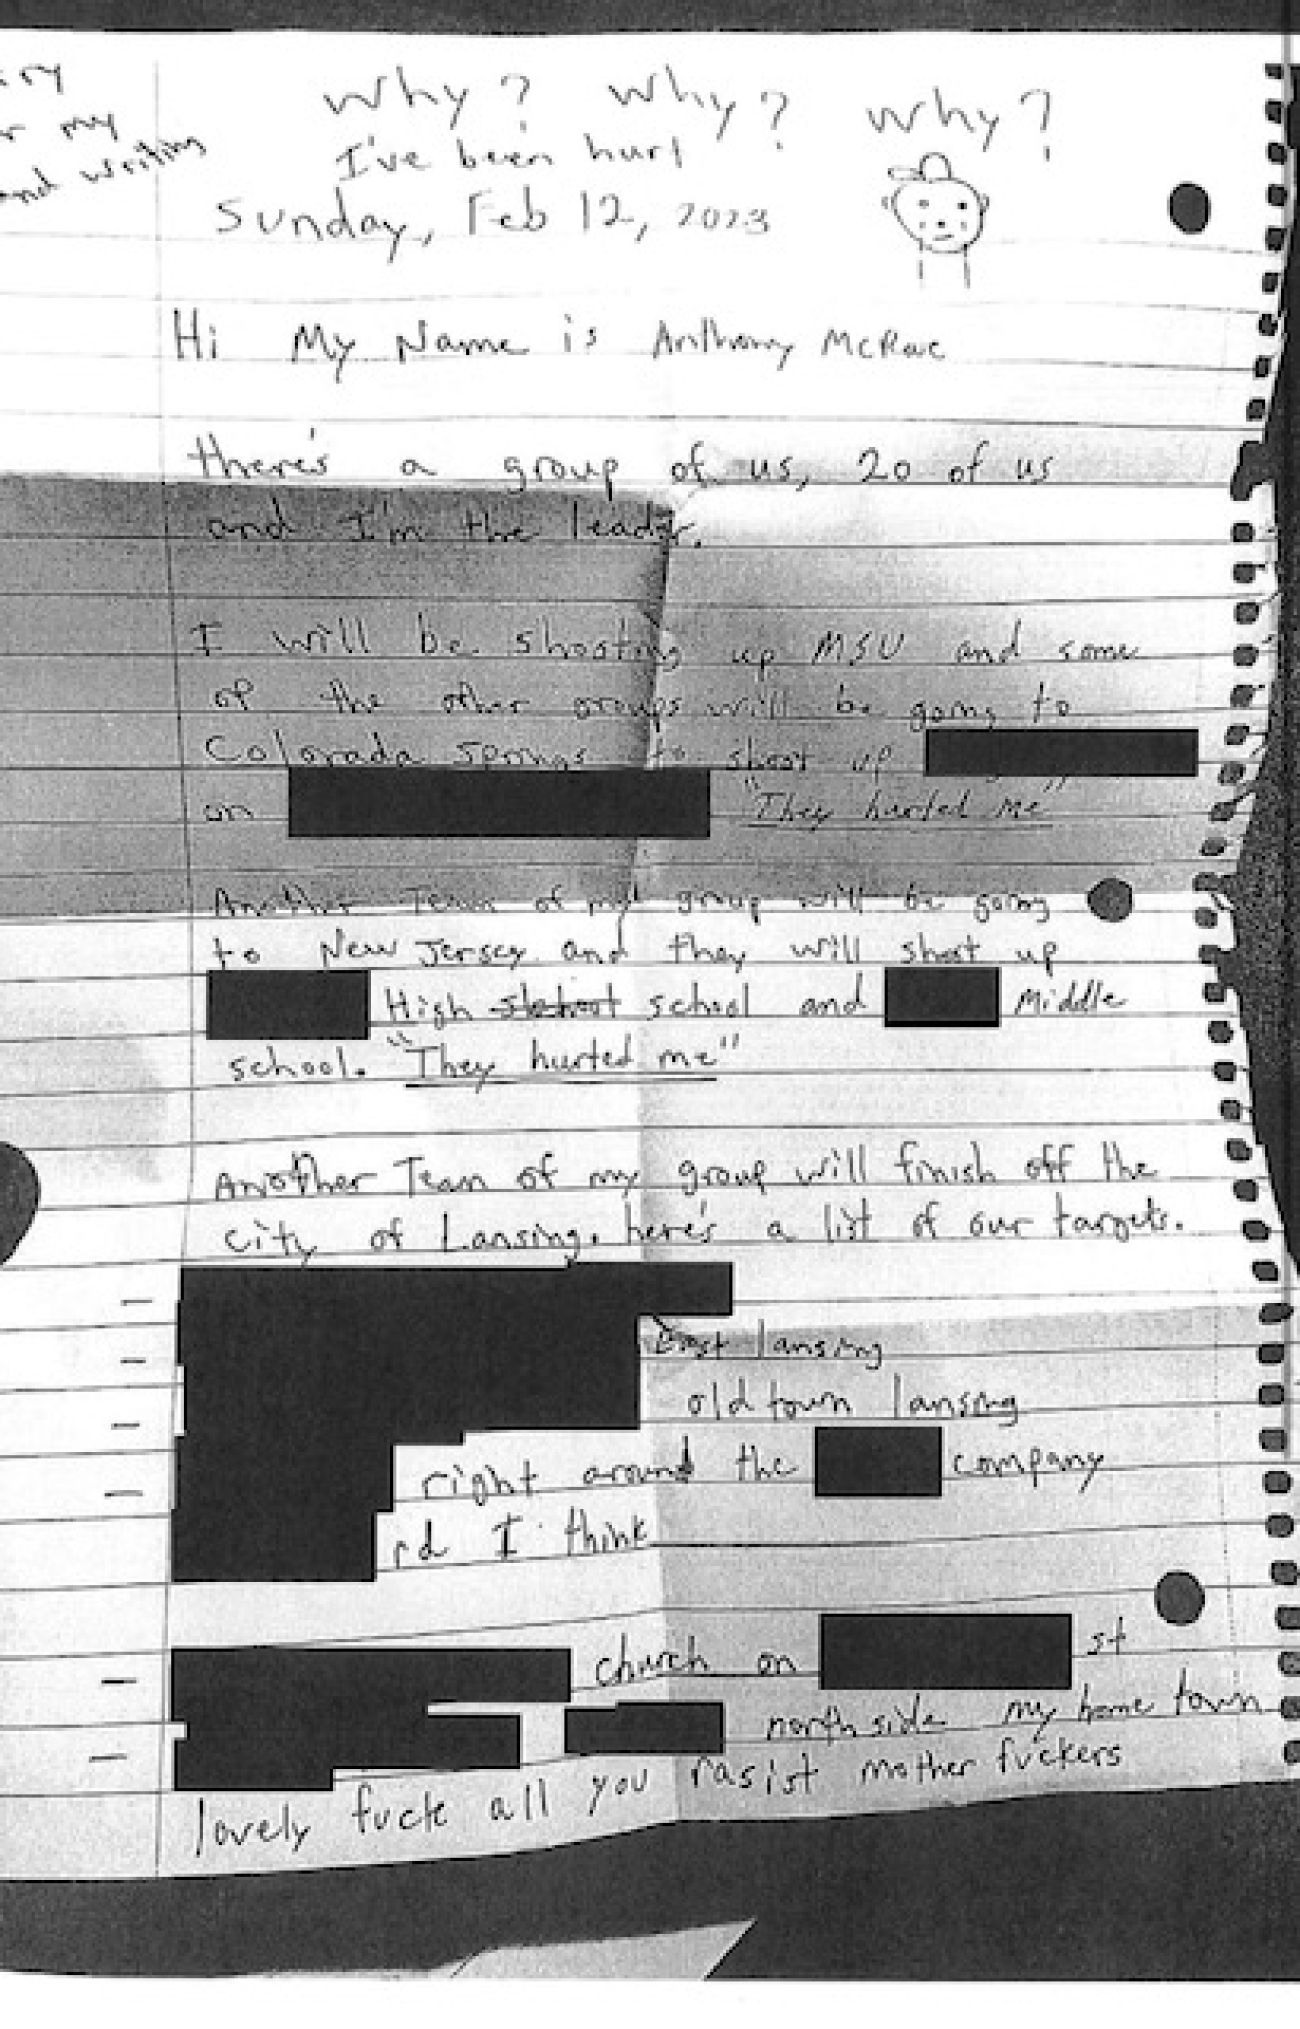 ry
my
and writing
Why? Why? Why?
I've been hurt
Sunday, Feb 12, 2023
Hi My Name is Anthony McRae
there's a group of us, 20 of us
and I'm the leader.
I will be shooting up MSU and some
of the other groups will be going to
Colorada springs to shoot up
on "They hurted me"
Another Team of my group will be going
to New Jersey and they will shoot up
High school and Middle
school. "They hurted me"
Another Team of my group will finish off the
city of Lansing. here's a list of our targets.
-
- East lansing
- old town lansing
- right around the company
rd I think
- church on st
- north side my home town
lovely fuck all you rasist mother fuckers